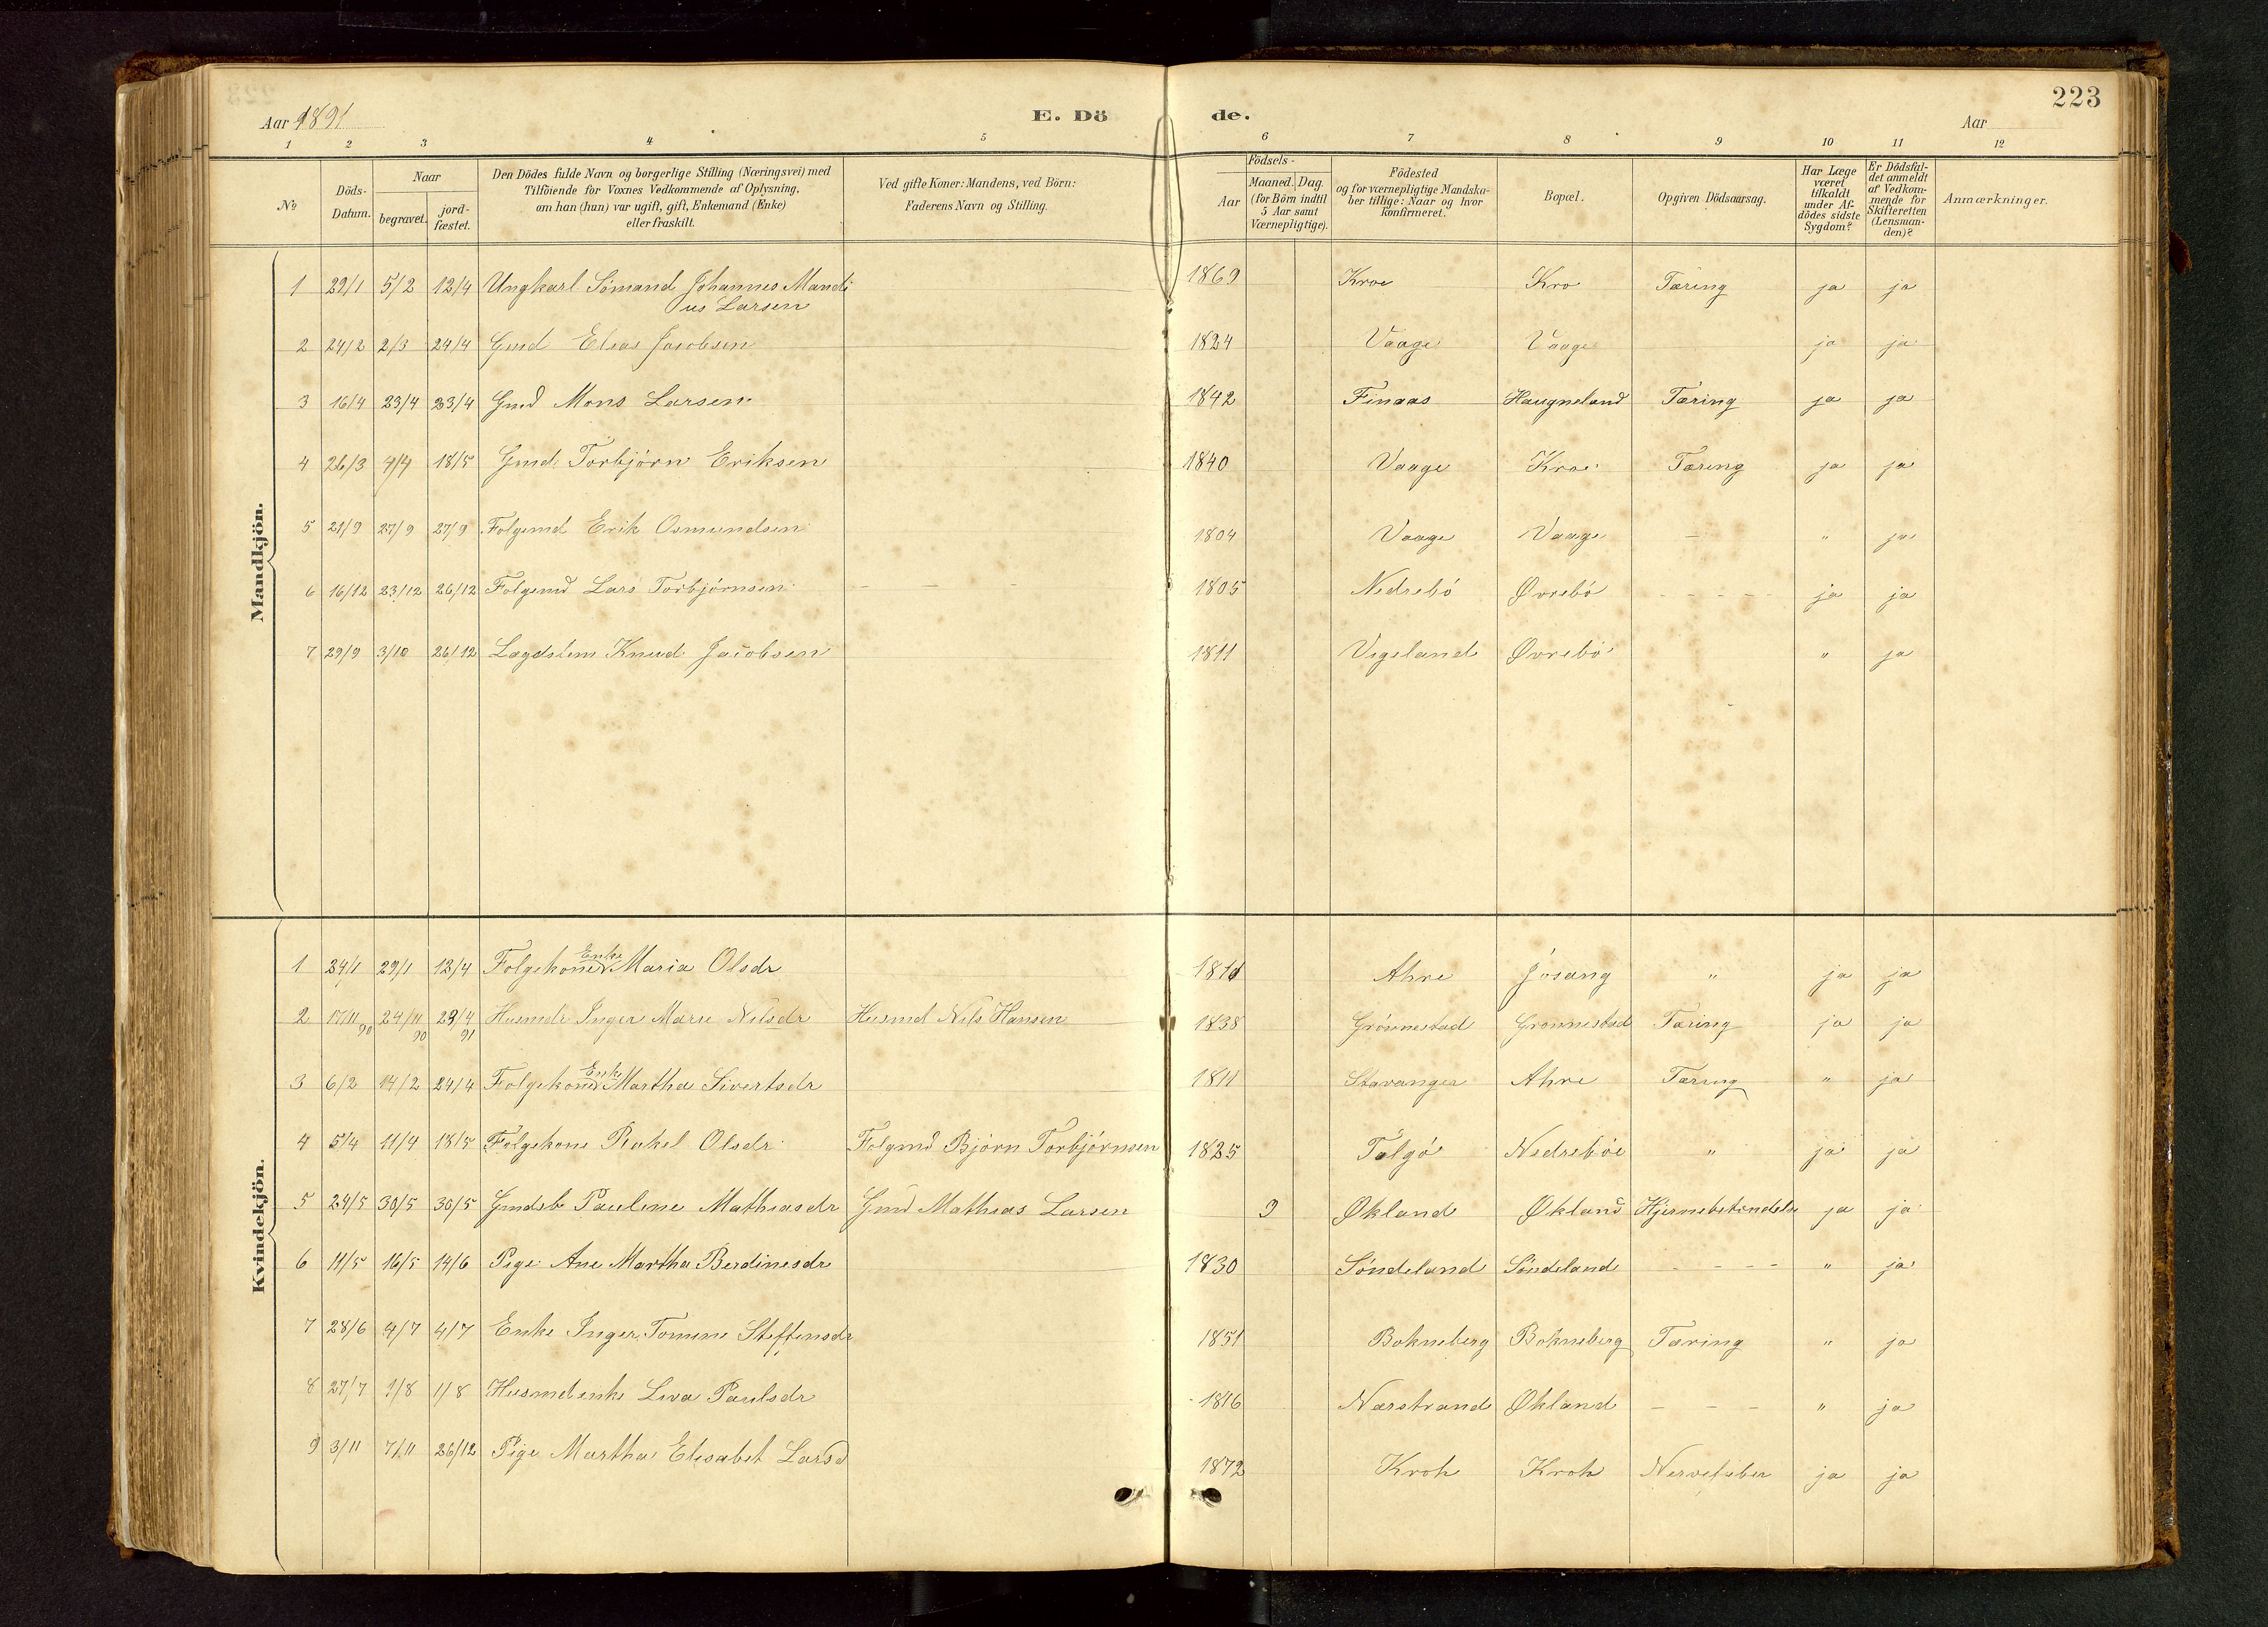 223
Aar 1891
E. Dö de.
Aar
1 2 3 4 5 6 7 8 9 10 11 12
No
Döds-Datum.
Naar
begravet.
jord-fæstet.
Den Dödes fulde Navn og borgerlige Stilling (Næringsvei) med
Tilföiende for Voxnes Vedkommende af Oplysning,
om han (hun) var ugift, gift, Enkemand (Enke)
eller fraskilt.
Ved gifte Koner: Mandens, ved Börn:
Faderens Navn og Stilling.
Födsels-
Aar
Maaned. Dag.
(for Börn indtil
5 Aar samt
Værnepligtige).
Födested
og for værnepligtige Mandska-
ber tillige: Naar og hvor
konfirmeret.
Bopæl.
Opgiven Dödsaarsag.
Har Læge
været
tilkaldt
under Af-
dödes sidste
Sygdom?
Er Dödsfal-
det anmeldt
af Vedkom-
mende for
Skifteretten
(Lensman-
den)?
Anmærkninger.
Mandkjön.
1 29/1 5/2 12/4 Ungkarl Sömand Johannes Mandi 1869 Kroe Kro Tæring ja ja
us Larsen
2 24/2 2/3 24/4 Gmd Elias Jacobsen 1824 Vaage Vaage ja ja
3 16/4 23/4 23/4 Gmd Mons Larsen 1842 Finaas Haugneland Tæring ja ja
4 26/3 4/4 18/5 Gmd. Torbjörn Eriksen 1840 Vaage Kroe Tæring ja ja
5 21/9 27/9 27/9 Folgemd Erik Osmundsen 1804 Vaage Vaage — " ja
6 16/12 23/12 26/12 Folgemd Lars Torbjörnsen — — - 1805 Nedrebö Øvrebö - - - - - ja ja
7 29/9 3/10 26/12 Lægdslem Knud Jacobsen 1811 Vigeland Øvrebö " ja
Kvindekjön.
1 24/1 29/1 12/4 Folgekone Enke Maria Olsdr 1811 Ahre Jösang " ja ja
2 17/11 90 24/11 90 29/4 91 Husmdr Inger Marie Nilsdr Husmd Nils Hansen 1838 Grönnestad Gronnestad Tæring ja ja
3 6/2 14/2 24/4 Folgekone Enke Martha Sivertsdr 1811 Stavanger Ahre Tæring " ja
4 5/4 11/4 18/5 Folgekone Rakel Olsdr Folgmd Björn Torbjörnsen 1825 Talgö Nedreböe " ja ja
5 24/5 30/5 30/5 Gmdsb Pauline Mathiasdr Gmd Mathias Larsen 9 Økland Økland Hjernebetændelse ja ja
6 11/5 16/5 14/6 Pige Ane Martha Berdinesdr 1830 Söndeland Söndeland - - - - " ja
7 28/6 4/7 4/7 Enke Inger Tomine Steffensdr 1851 Bokneberg Bokneberg Tæring " ja
8 27/7 1/8 1/8 Husmdenke Liva Paulsdr 1816 Nærstrand Økland — — — " ja
9 3/11 7/11 26/12 Pige Martha Elisabet Larsd 1872 Kroh Kroh Nervefeber ja ja